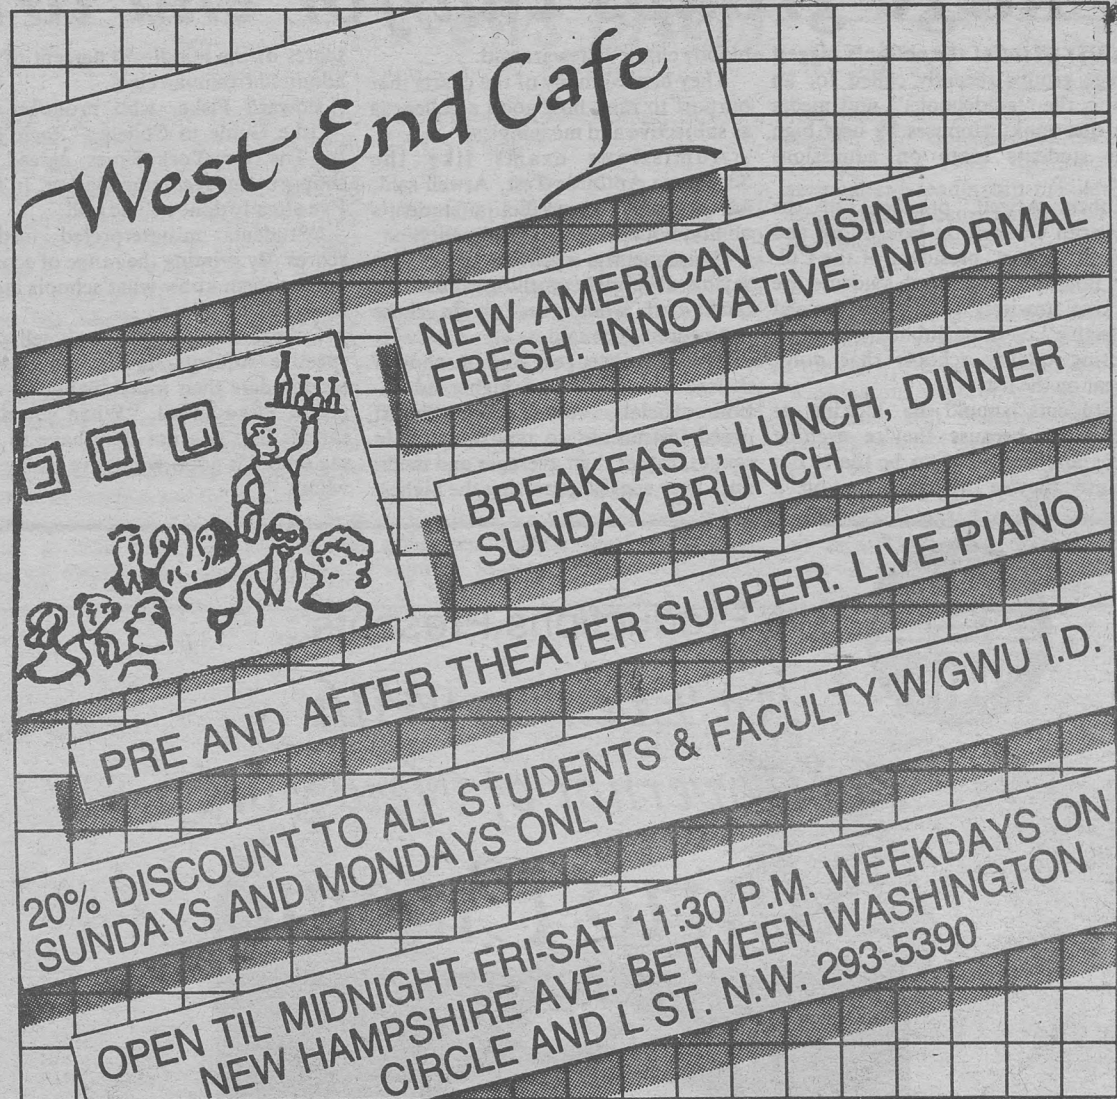 West End Cafe
NEW AMERICAN CUISINE
FRESH. INNOVATIVE. INFORMAL
BREAKFAST, LUNCH, DINNER
SUNDAY BRUNCH
PRE AND AFTER THEATER SUPPER. LIVE PIANO
20% DISCOUNT TO ALL STUDENTS & FACULTY W/GWU I.D.
SUNDAYS AND MONDAYS ONLY
OPEN TIL MIDNIGHT FRI-SAT 11:30 P.M. WEEKDAYS ON
NEW HAMPSHIRE AVE. BETWEEN WASHINGTON
CIRCLE AND L ST. N.W. 293-5390